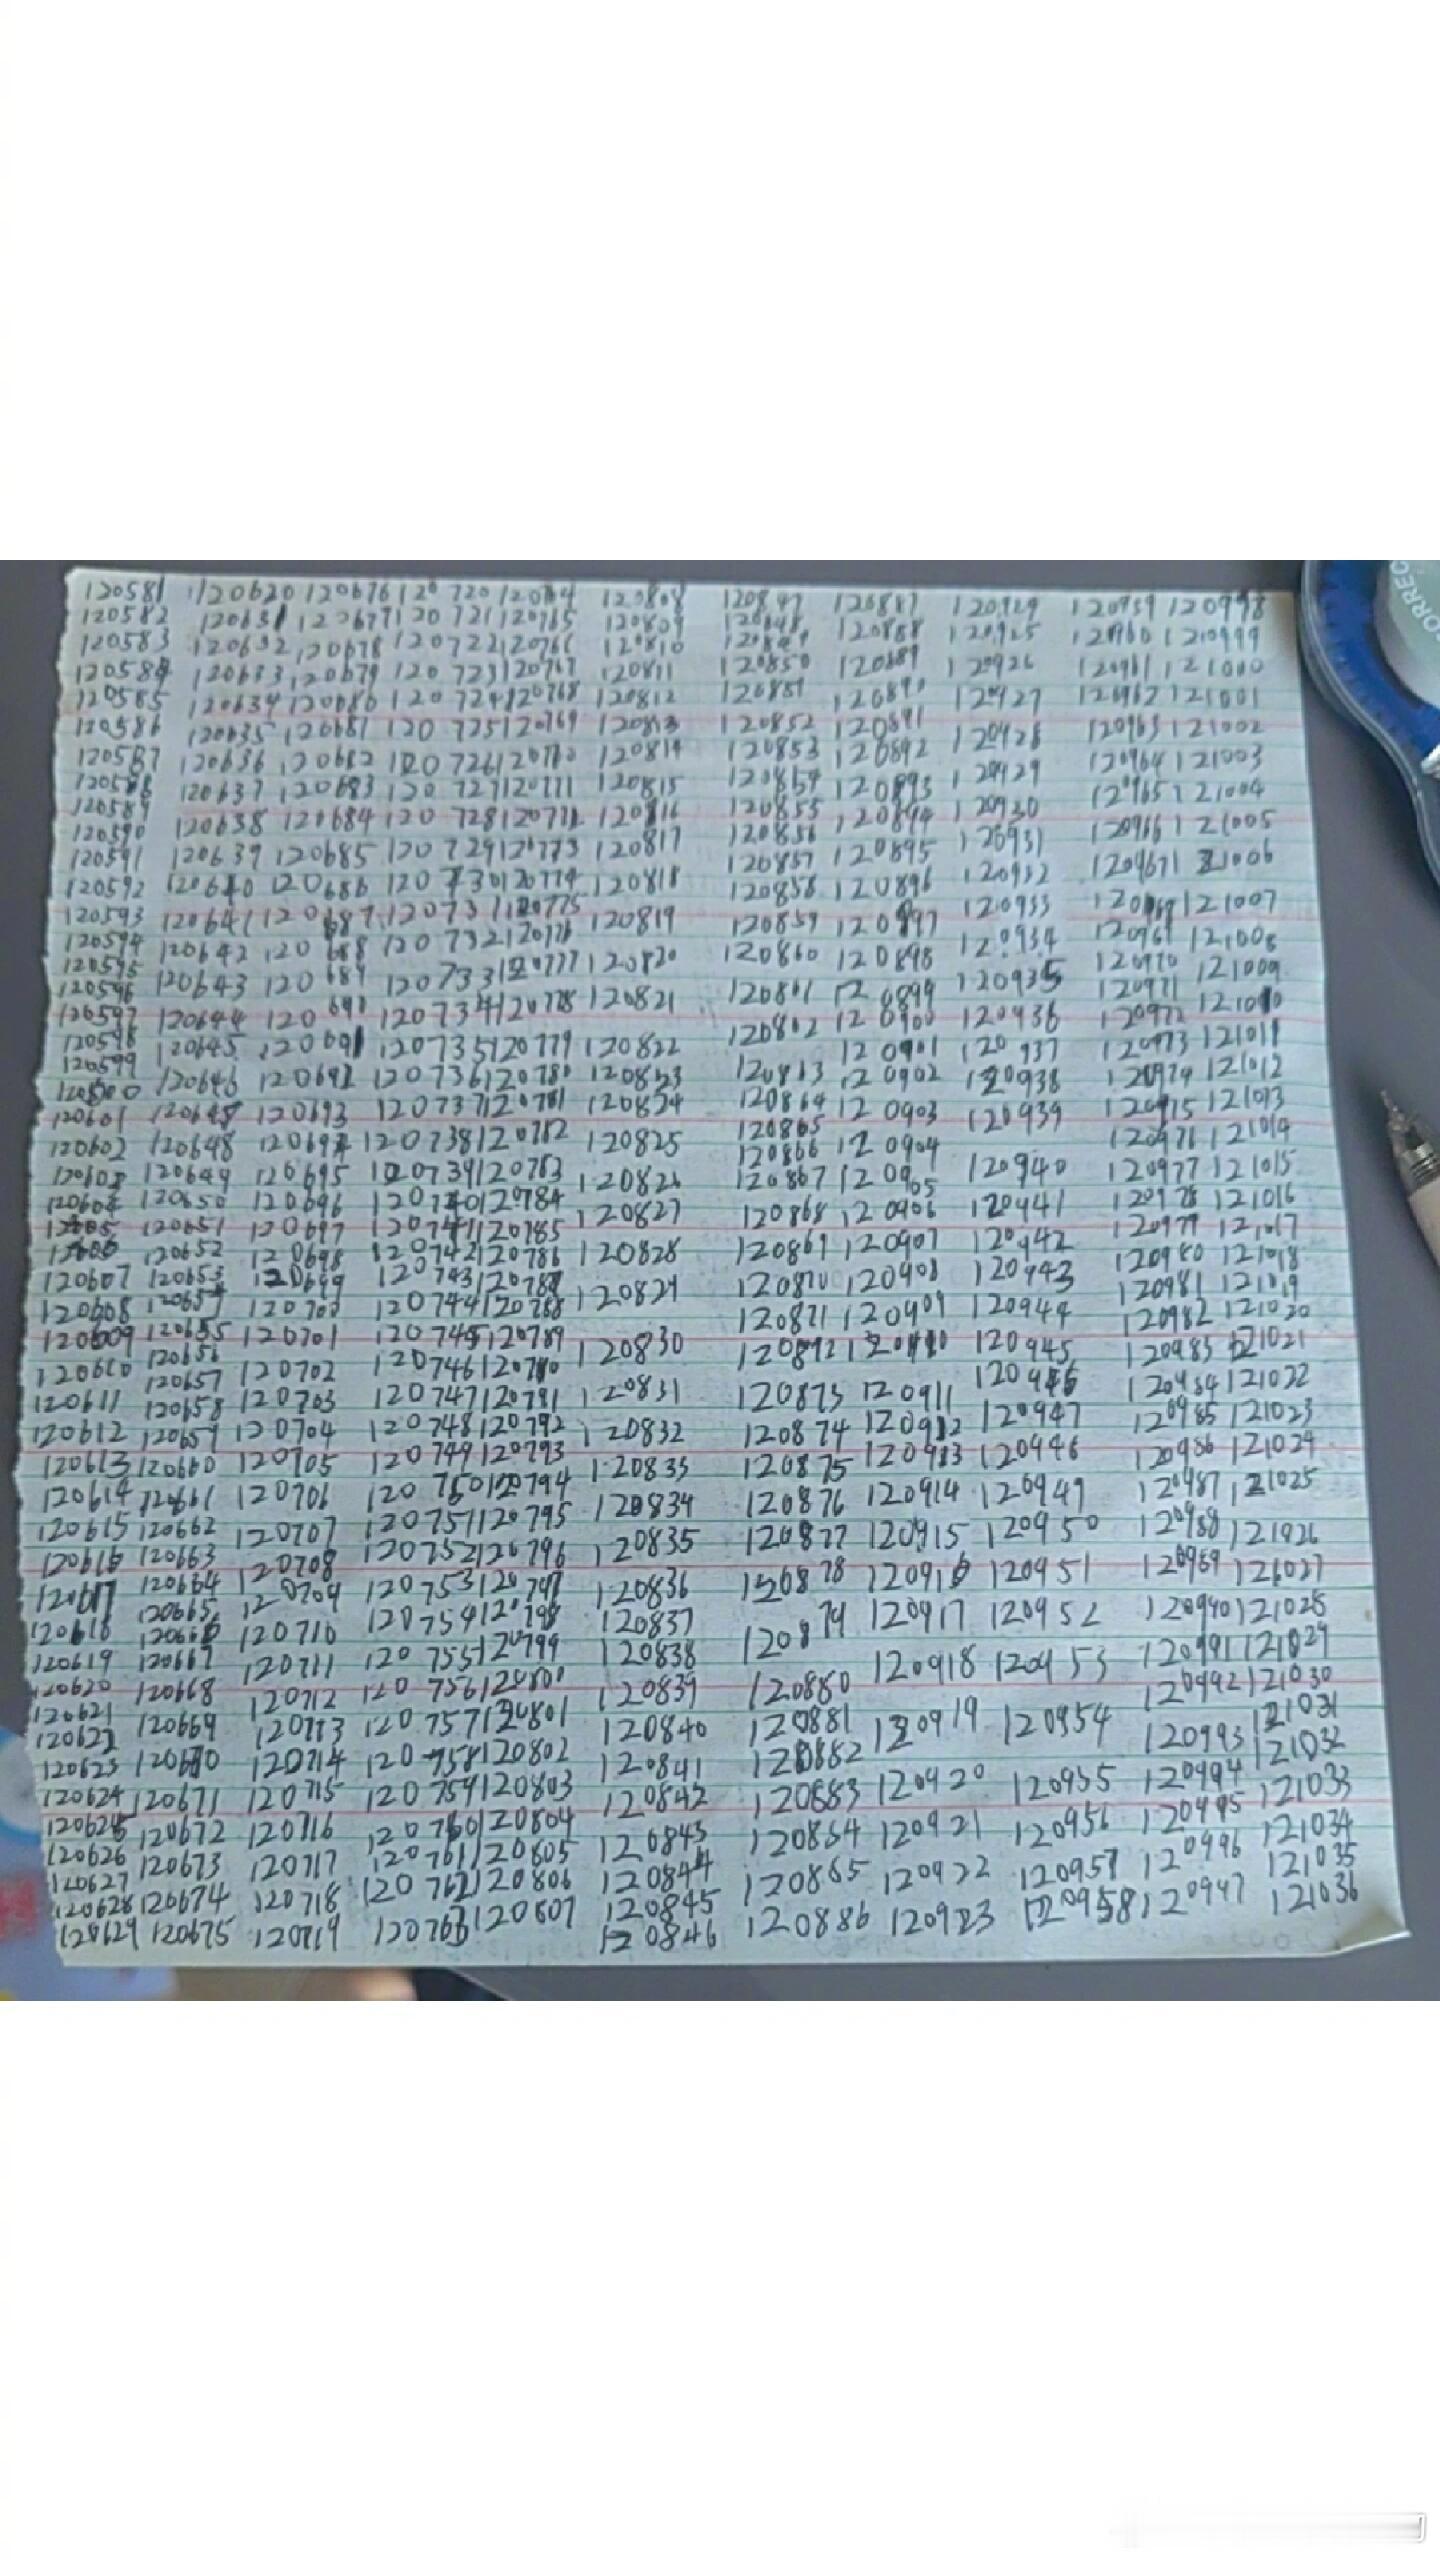 120581
120582
120583
120584
120585
120586
120587
120588
120589
120590
120591
120592
120593
120594
120595
120596
120597
120598
120599
120600
120601
120602
120603
120604
120607
120608
120609
120610
120611
120612
120613
120614
120615
120616
120617
120618
120619
120620
120621
120622
120623
120624
120625
120626
120627
120628
120629
120620
120631
120632
120633
120634
120635
120636
120637
120638
120639
120640
120641
120642
120643
120644
120645
120646
120648
120649
120650
120651
120652
120653
120654
120655
120656
120657
120658
120659
120660
120661
120662
120663
120664
120665
120666
120667
120668
120669
120670
120671
120672
120673
120674
120675
120676
120677
120678
120679
120680
120681
120682
120683
120684
120685
120686
120687
120688
120689
120690
120691
120692
120693
120694
120695
120696
120697
120698
120699
120700
120701
120702
120703
120704
120705
120706
120707
120708
120709
120710
120711
120712
120713
120714
120715
120716
120717
120718
120719
120720
120721
120722
120723
120724
120725
120726
120727
120728
120729
120730
120731
120732
120733
120734
120735
120736
120737
120738
120739
120740
120741
120742
120743
120744
120745
120746
120747
120748
120749
120750
120751
120752
120753
120754
120755
120756
120757
120758
120759
120760
120761
120762
120763
120764
120765
120766
120767
120768
120769
120770
120771
120772
120773
120774
120775
120776
120777
120778
120779
120780
120781
120782
120783
120784
120785
120786
120787
120788
120789
120790
120791
120792
120793
120794
120795
120796
120797
120798
120799
120800
120801
120802
120803
120804
120805
120806
120807
120808
120809
120810
120811
120812
120813
120814
120815
120816
120817
120818
120819
120820
120821
120822
120823
120824
120825
120826
120827
120828
120829
120830
120831
120832
120833
120834
120835
120836
120837
120838
120839
120840
120841
120842
120843
120844
120845
120846
120847
120848
120849
120850
120851
120852
120853
120854
120855
120856
120857
120858
120859
120860
120861
120862
120863
120864
120865
120866
120867
120868
120869
120870
120871
120872
120873
120874
120875
120876
120877
120878
120879
120880
120881
120882
120883
120884
120885
120886
120887
120888
120889
120890
120891
120892
120893
120894
120895
120896
120897
120898
120899
120900
120901
120902
120903
120904
120905
120906
120907
120908
120909
120910
120911
120912
120913
120914
120915
120916
120917
120918
120919
120920
120921
120922
120923
120924
120925
120926
120927
120928
120929
120930
120931
120932
120933
120934
120935
120936
120937
120938
120939
120940
120941
120942
120943
120944
120945
120946
120947
120948
120949
120950
120951
120952
120953
120954
120955
120956
120957
120958
120959
120960
120961
120962
120963
120964
120965
120966
120967
120968
120969
120970
120971
120972
120973
120974
120975
120976
120977
120978
120979
120980
120981
120982
120983
120984
120985
120986
120987
120988
120989
120990
120991
120992
120993
120994
120995
120996
120997
120998
120999
121000
121001
121002
121003
121004
121005
121006
121007
121008
121009
121010
121011
121012
121013
121014
121015
121016
121017
121018
121019
121020
121021
121022
121023
121024
121025
121026
121027
121028
121029
121030
121031
121032
121033
121034
121035
121036
CORREC